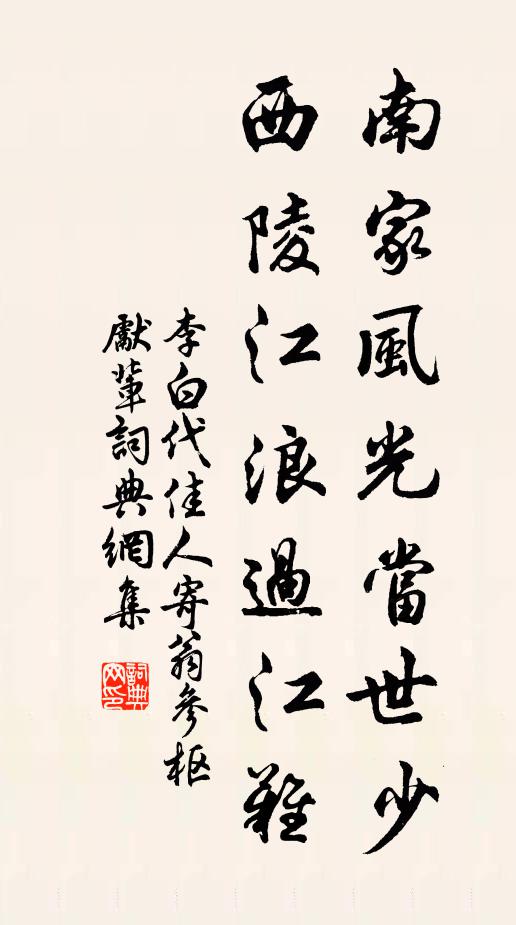 南家風光當世少
西陵江浪過江難
李白代佳人寄翁參樞
獻輩詞典網集
詞典网印